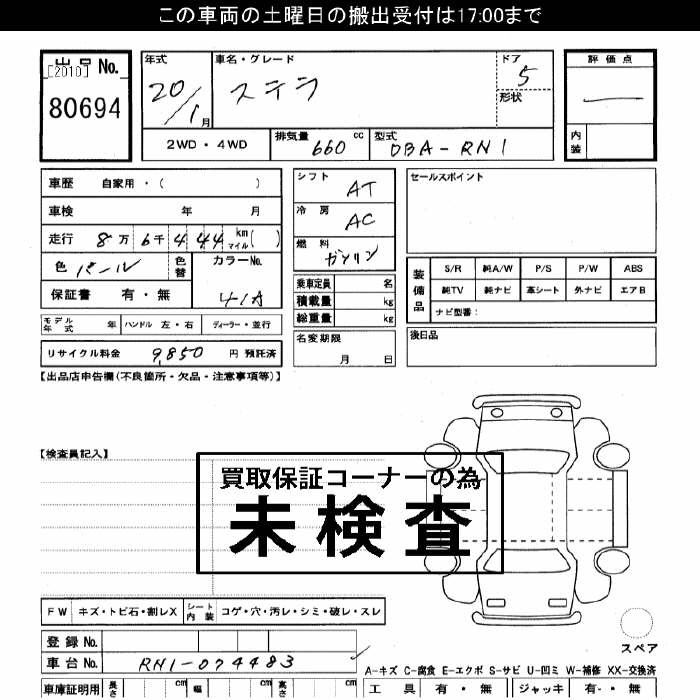 この車両の土曜日の搬出受付は17:00まで
出品 No.
[2010]
80694
年式
20/1月
車名・グレード
ステラ
ドア
5
形状
評価点
内装
2WD・4WD
排気量 660 cc
型式 DBA-RN1
車歴 自家用・( )
車検 年 月
走行 8万 6千 4 44 km マイル ( )
色 パール
色替
カラーNo.
41A
保証書 有・無
シフト AT
冷房 AC
燃料 ガソリン
乗車定員 名
積載量 kg
総重量 kg
セールスポイント
装備品
S/R 純A/W P/S P/W ABS
純TV 純ナビ 革シート 外ナビ エアB
ナビ型番:
モデル年式 年 ハンドル 左・右 ディーラー・並行
リサイクル料金 9,850 円 預託済
名変期限
月 日
後日品
【出品店申告欄(不良箇所・欠品・注意事項等)】
【検査員記入】
買取保証コーナーの為
未検査
FW キズ・トビ石・割レX シート内装 コゲ・穴・汚レ・シミ・破レ・スレ
登録No.
車台No. RN1-074483
スペア
A-キズ C-腐食 E-エクボ S-サビ U-凹ミ W-補修 XX-交換済
車庫証明用 長さ cm 幅 cm 高さ cm
工具 有・無 ジャッキ 有・無